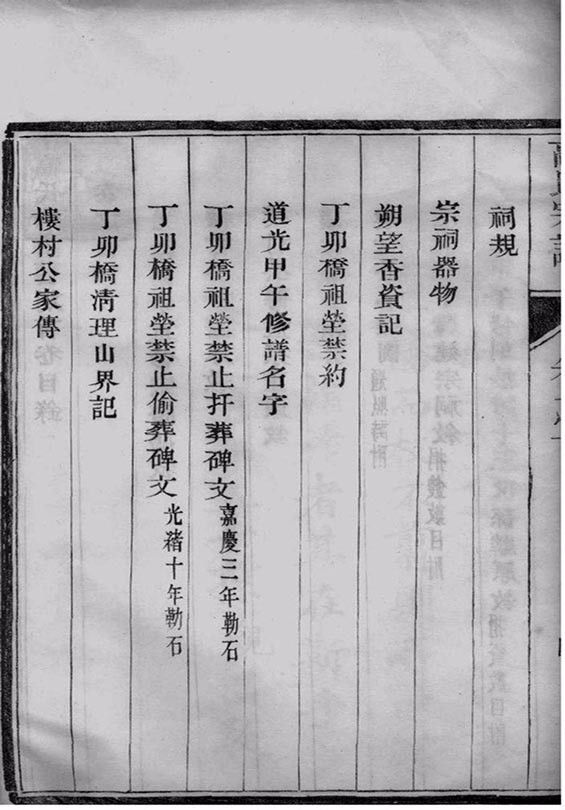 祠規
宗祠器物
朔望香資記
丁卯橋祖塋禁約
道光甲午修譜名字
丁卯橋祖塋禁止扦葬碑文 嘉慶三年勒石
丁卯橋祖塋禁止偷葬碑文 光緒十年勒石
丁卯橋淸理山界記
樓村公家傳